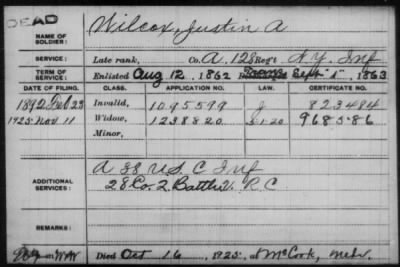 DEAD
NAME OF SOLDIER: Wilcox, Justin A
SERVICE: Late rank, Co. A, 128 Reg't N.Y. Inf
TERM OF SERVICE: Enlisted Aug 12, 1862 Sept 5, 1863
DATE OF FILING. CLASS. APPLICATION NO. LAW. CERTIFICATE NO.
1892 Feb 23 Invalid, 1095599 J 823484
1925 Nov 11 Widow, 1238820 5-1-20 968586
Minor,
ADDITIONAL SERVICES: A 38 U.S. C Inf
28 Co. 2 Batt V. R C
REMARKS:
Died Oct 16, 1925, at McCook, Nebr.